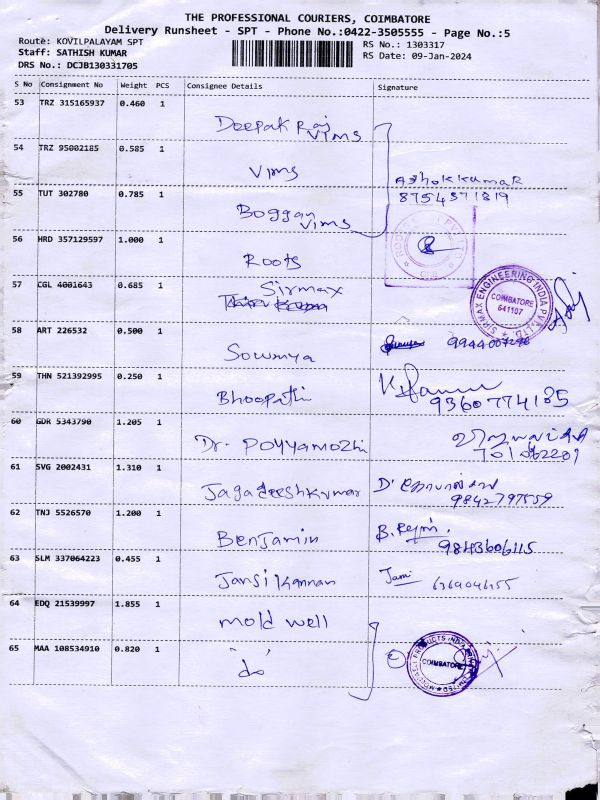 THE PROFESSIONAL COURIERS, COIMBATORE
Delivery Runsheet - SPT - Phone No.:0422-3505555 - Page No.:5
Route: KOVILPALAYAM SPT
Staff: SATHISH KUMAR
DRS No.: DCJB130331705
RS No.: 1303317
RS Date: 09-Jan-2024
S No Consignment No Weight PCS Consignee Details Signature
53 TRZ 315165937 0.460 1
Deepak Raj
vims
54 TRZ 95002185 0.585 1
vims
Ashokkumar
8754371819
55 TUT 302780 0.785 1
Boggan
vims
56 HRD 357129597 1.000 1
Roots
57 CGL 4001643 0.685 1
Sirmax
SIRMAX ENGINEERING INDIA PVT. LTD.
COIMBATORE
641107
58 ART 226532 0.500 1
Sowmya
59 THN 521392995 0.250 1
Bhoopathi
9360774185
60 GDR 5343790 1.205 1
Dr. Poyyamozhi
61 SVG 2002431 1.310 1
Jagadeeshkumar
9842797559
62 TNJ 5526570 1.200 1
Benjamin
9843606115
63 SLM 337064223 0.455 1
Jansi Kannan
64 EDQ 21539997 1.855 1
mold well
65 MAA 108534910 0.820 1
"do"
COIMBATORE